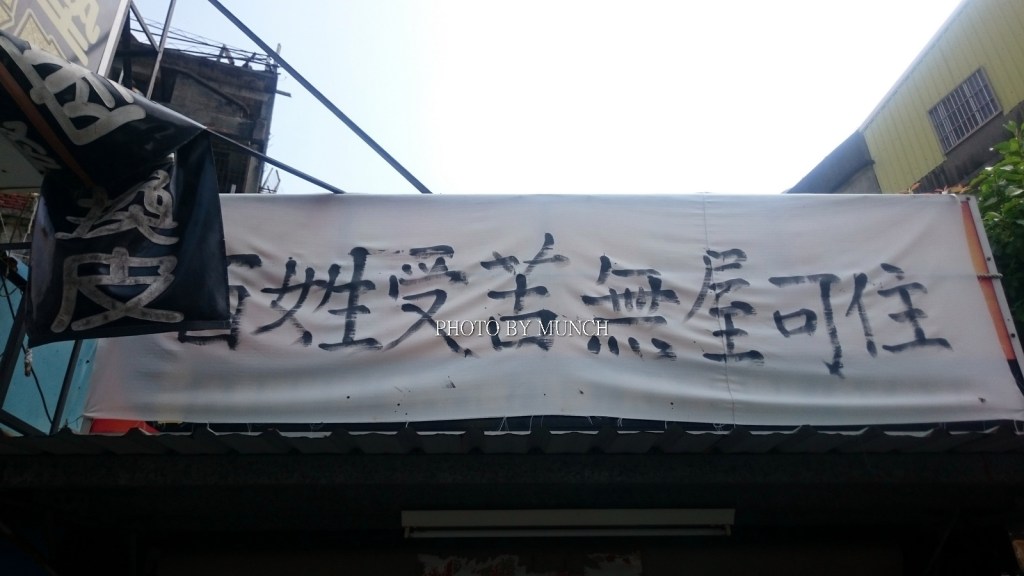 百姓受苦無屋可住
皮
PHOTO BY MUNCH